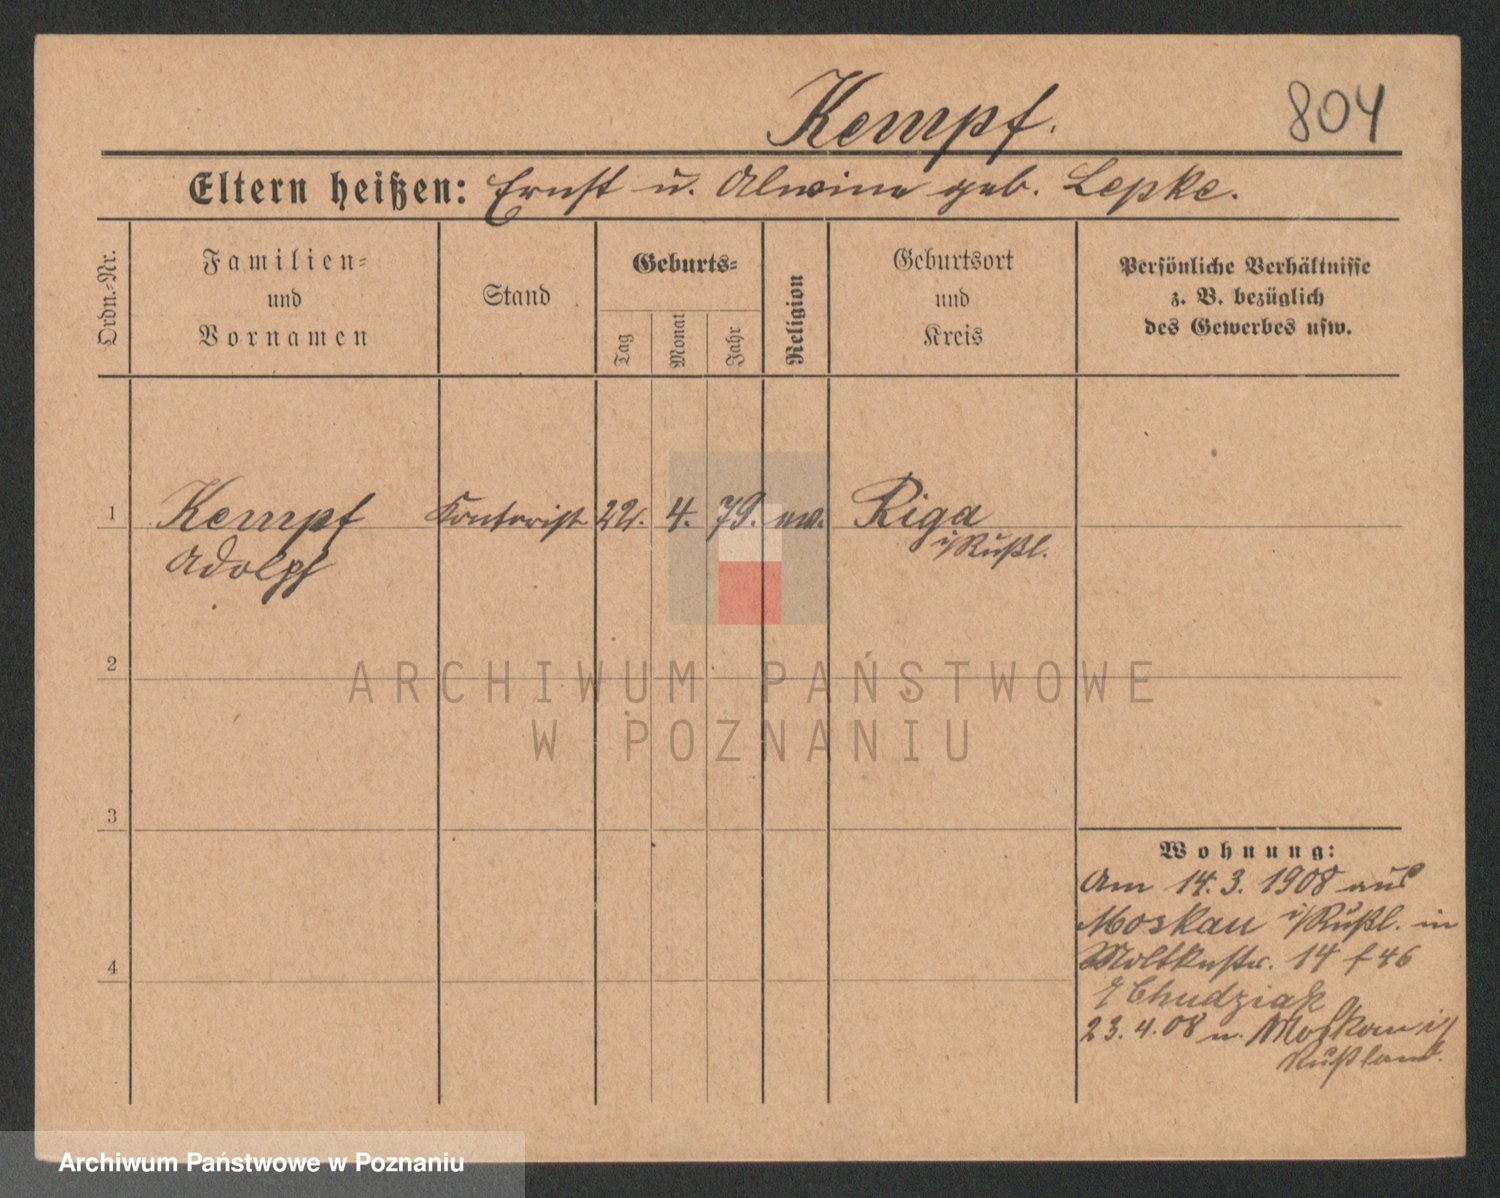 Kempf.
804
Eltern heißen: Ernst u. Alwine geb. Lepke.
Ordn.-Nr.
Familien-
und
Vornamen
Stand
Geburts-
Tag
Monat
Jahr
Religion
Geburtsort
und
Kreis
Persönliche Verhältnisse
z. B. bezüglich
des Gewerbes usw.
1
Kempf
Adolph
Kontorist
22.
4.
79.
ev.
Riga
i/Rußl.
2
3
4
ARCHIWUM PAŃSTWOWE
W POZNANIU
Wohnung:
Am 14.3. 1908 aus
Moskau i/Rußl. in
Moltkestr. 14
Chudziak
23.4.08 n. Moskau i/
Rußland.
Archiwum Państwowe w Poznaniu